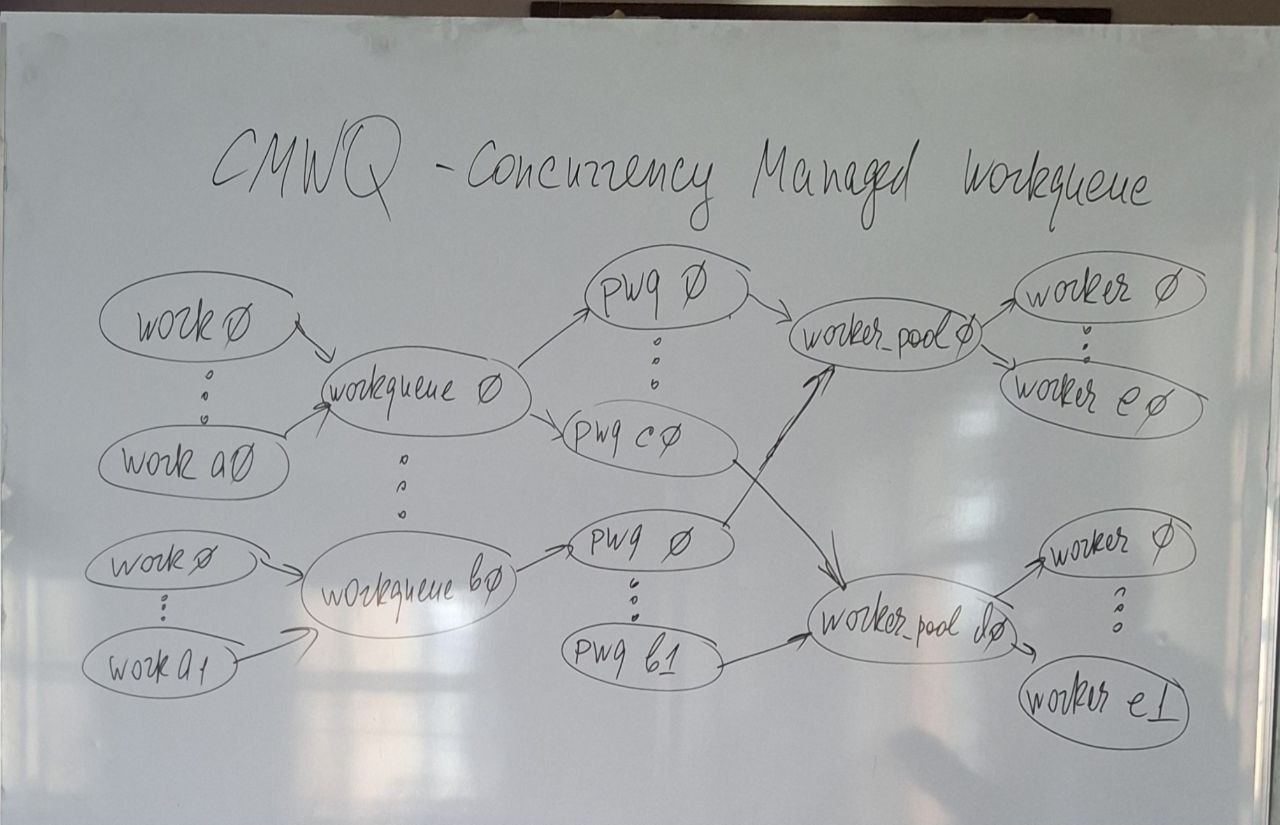 CMWQ - Concurrency Managed workqueue
work 0
work a0
work 0
work a1
workqueue 0
workqueue b0
pwq 0
pwq c0
pwq 0
pwq b1
worker_pool 0
worker_pool d0
worker 0
worker e0
worker 0
worker e1